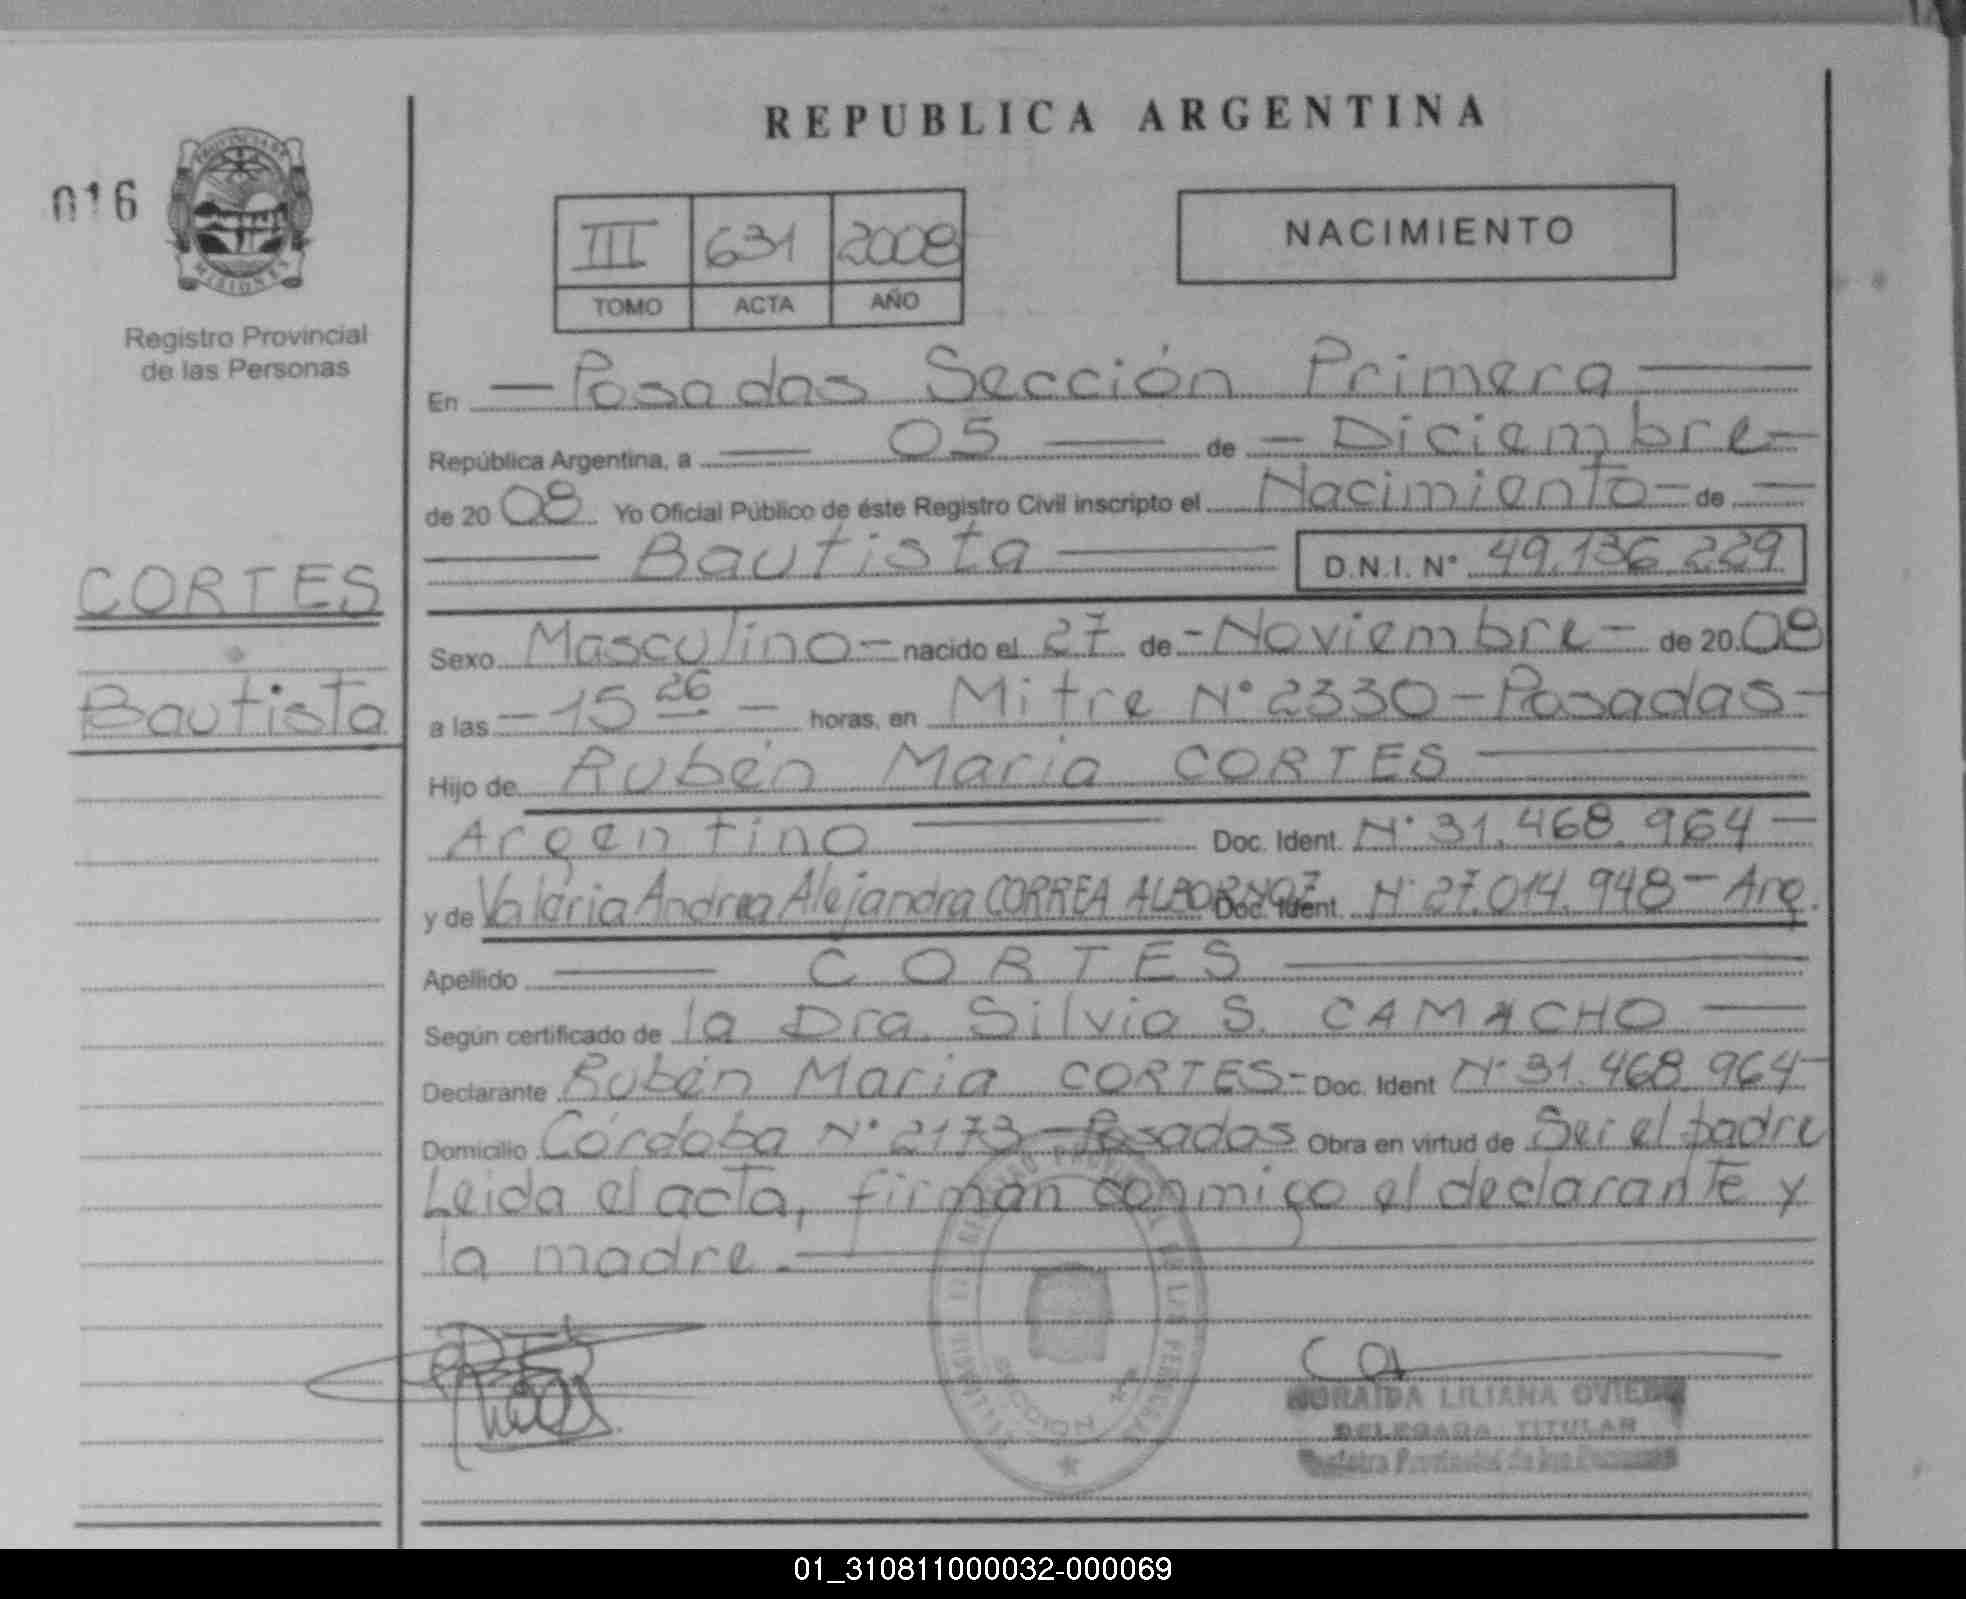 REPUBLICA ARGENTINA
016
PROVINCIA DE
MISIONES
Registro Provincial
de las Personas
III 631 2008
TOMO ACTA AÑO
NACIMIENTO
En Posadas Sección Primera
República Argentina, a 05 de Diciembre
de 2008 Yo Oficial Público de éste Registro Civil inscripto el Nacimiento de
Bautista D.N.I. N° 49.136.229
CORTES
Bautista
Sexo Masculino nacido el 27 de Noviembre de 2008
a las 15 26 horas, en Mitre N° 2330 - Posadas
Hijo de Rubén Maria CORTES
Argentino Doc. Ident. N° 31.468.964
y de Valeria Andrea Alejandra CORREA ALBORNOZ Doc. Ident. N° 27.014.948 - Arg.
Apellido CORTES
Según certificado de la Dra. Silvia S. CAMACHO
Declarante Rubén Maria CORTES - Doc. Ident N° 31.468.964
Domicilio Córdoba N° 2173 - Posadas Obra en virtud de Ser el padre
Leida el acta, firman conmigo el declarante y
la madre.
NORAIDA LILIANA OVIEDO
DELEGADA TITULAR
Registro Provincial de las Personas
01_310811000032-000069